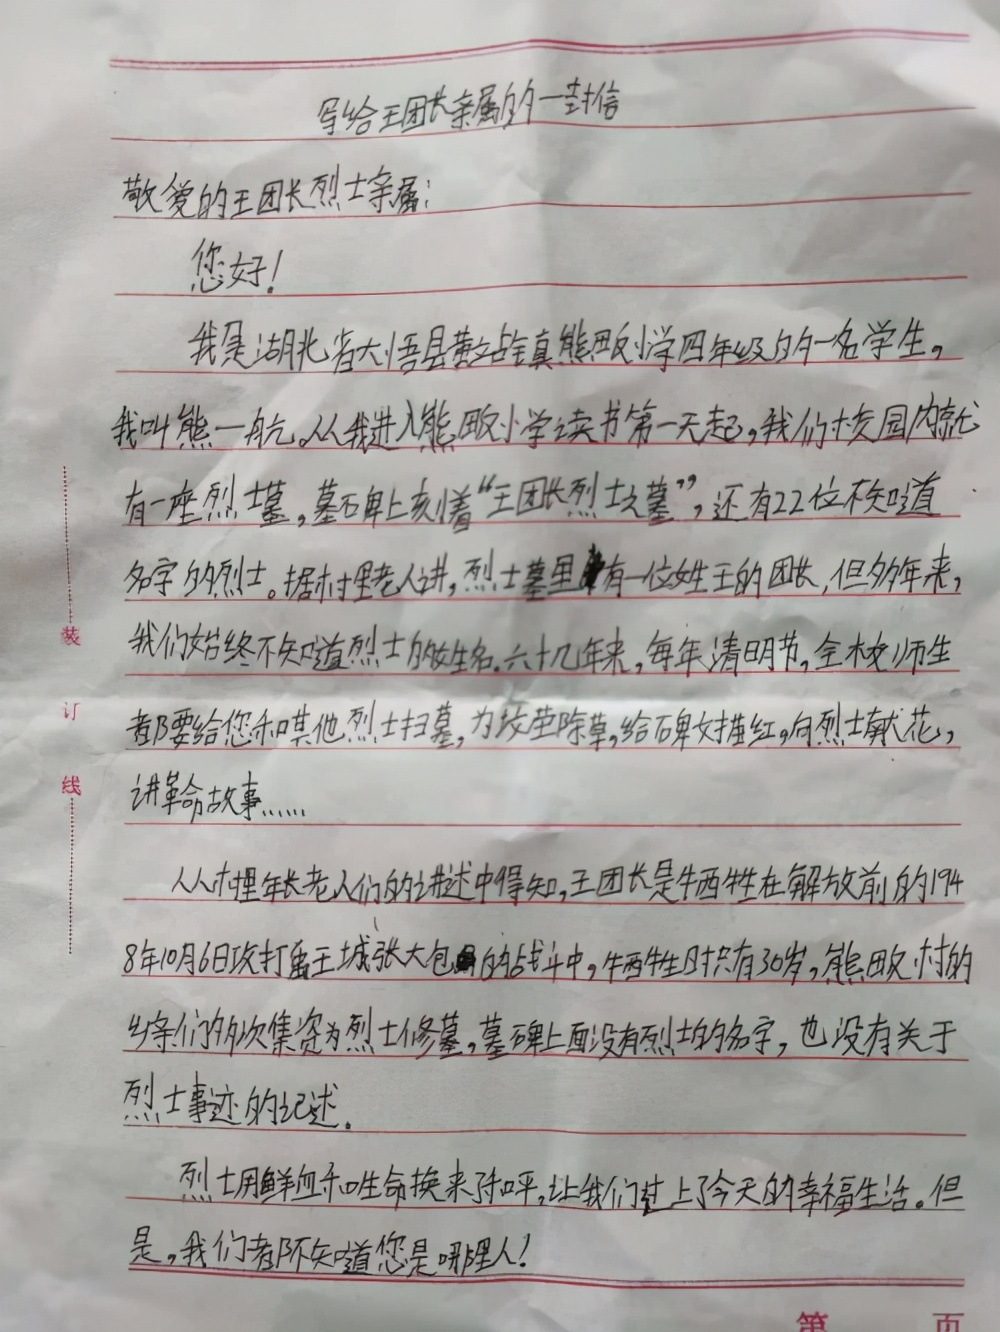 写给王团长亲属的一封信
敬爱的王团长烈士亲属:
您好!
我是湖北省大悟县黄站镇熊畈小学四年级的一名学生,
我叫熊一航。从我进入熊畈小学读书第一天起,我们校园内就
有一座烈士墓,墓石碑上刻着“王团长烈士之墓”,还有22位不知道
名字的烈士。据村里老人讲,烈士墓里有一位姓王的团长,但多年来,
我们始终不知道烈士的姓名。六十几年来,每年清明节,全校师生
都要给您和其他烈士扫墓,为坟茔除草,给碑文描红,向烈士献花,
讲革命故事……
从村里年长老人们的讲述中得知,王团长是牺牲在解放前的194
8年10月6日攻打禹王城张大包的战斗中,牺牲时只有30岁,熊畈村的
乡亲们多次集资为烈士修墓,墓碑上面没有烈士的名字,也没有关于
烈士事迹的记述.
烈士用鲜血和生命换来了和平,让我们过上了今天的幸福生活。但
是,我们都不知道您是哪里人!
装
订
线
第 页